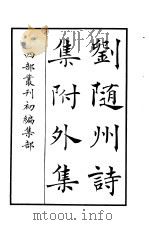 劉隨州詩
集附外集
四部叢刊初編集部
mtoou.info